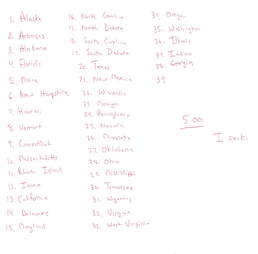 1. Alaska
2. Arkansas
3. Alabama
4. Florida
5. Maine
6. New Hampshire
7. Hawaii
8. Vermont
9. Connecticut
10. Massachusetts
11. Rhode Island
12. Iowa
13. California
14. Delaware
15. Maryland
16. North Carolina
17. North Dakota
18. South Carolina
19. South Dakota
20. Texas
21. New Mexico
22. Wisconsin
23. Michigan
24. Pennsylvania
25. Nevada
26. Minnesota
27. Oklahoma
28. Ohio
29. Mississippi
30. Tennessee
31. Wyoming
32. Virginia
33. West Virginia
34. Oregon
35. Washington
36. Illinois
37. Indiana
38. Georgia
39
5:00
I suck.